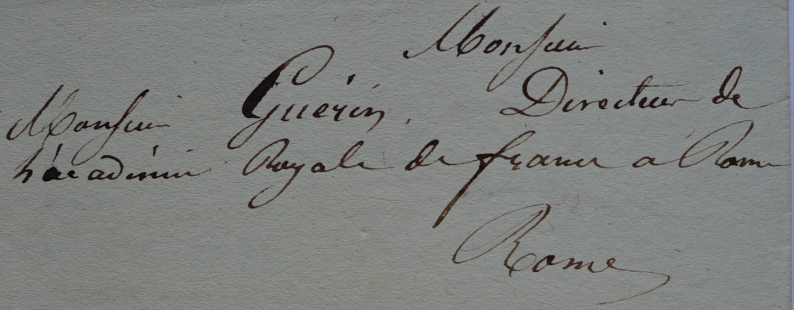 Monsieur
Monsieur Guérin, Directeur de
l'académie Royale de france a Rome
Rome